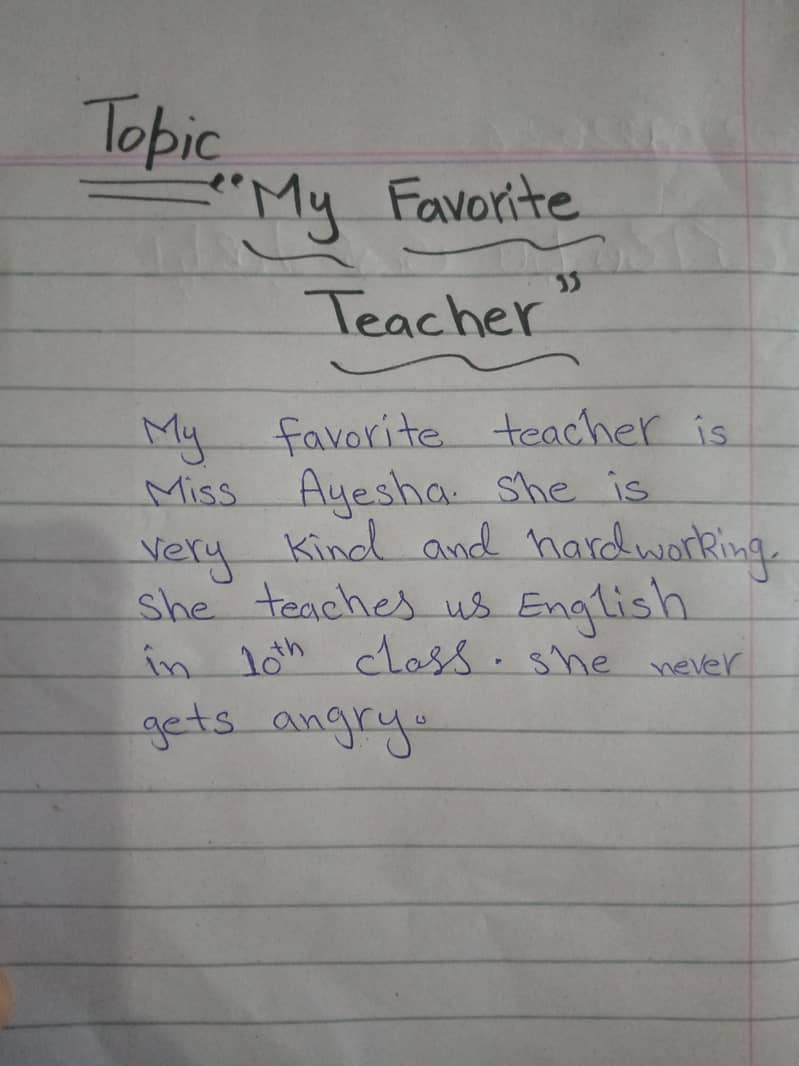 Topic
"My Favorite
Teacher"
My favorite teacher is
Miss Ayesha. She is
very kind and hardworking.
She teaches us English
in 10th class. she never
gets angry.